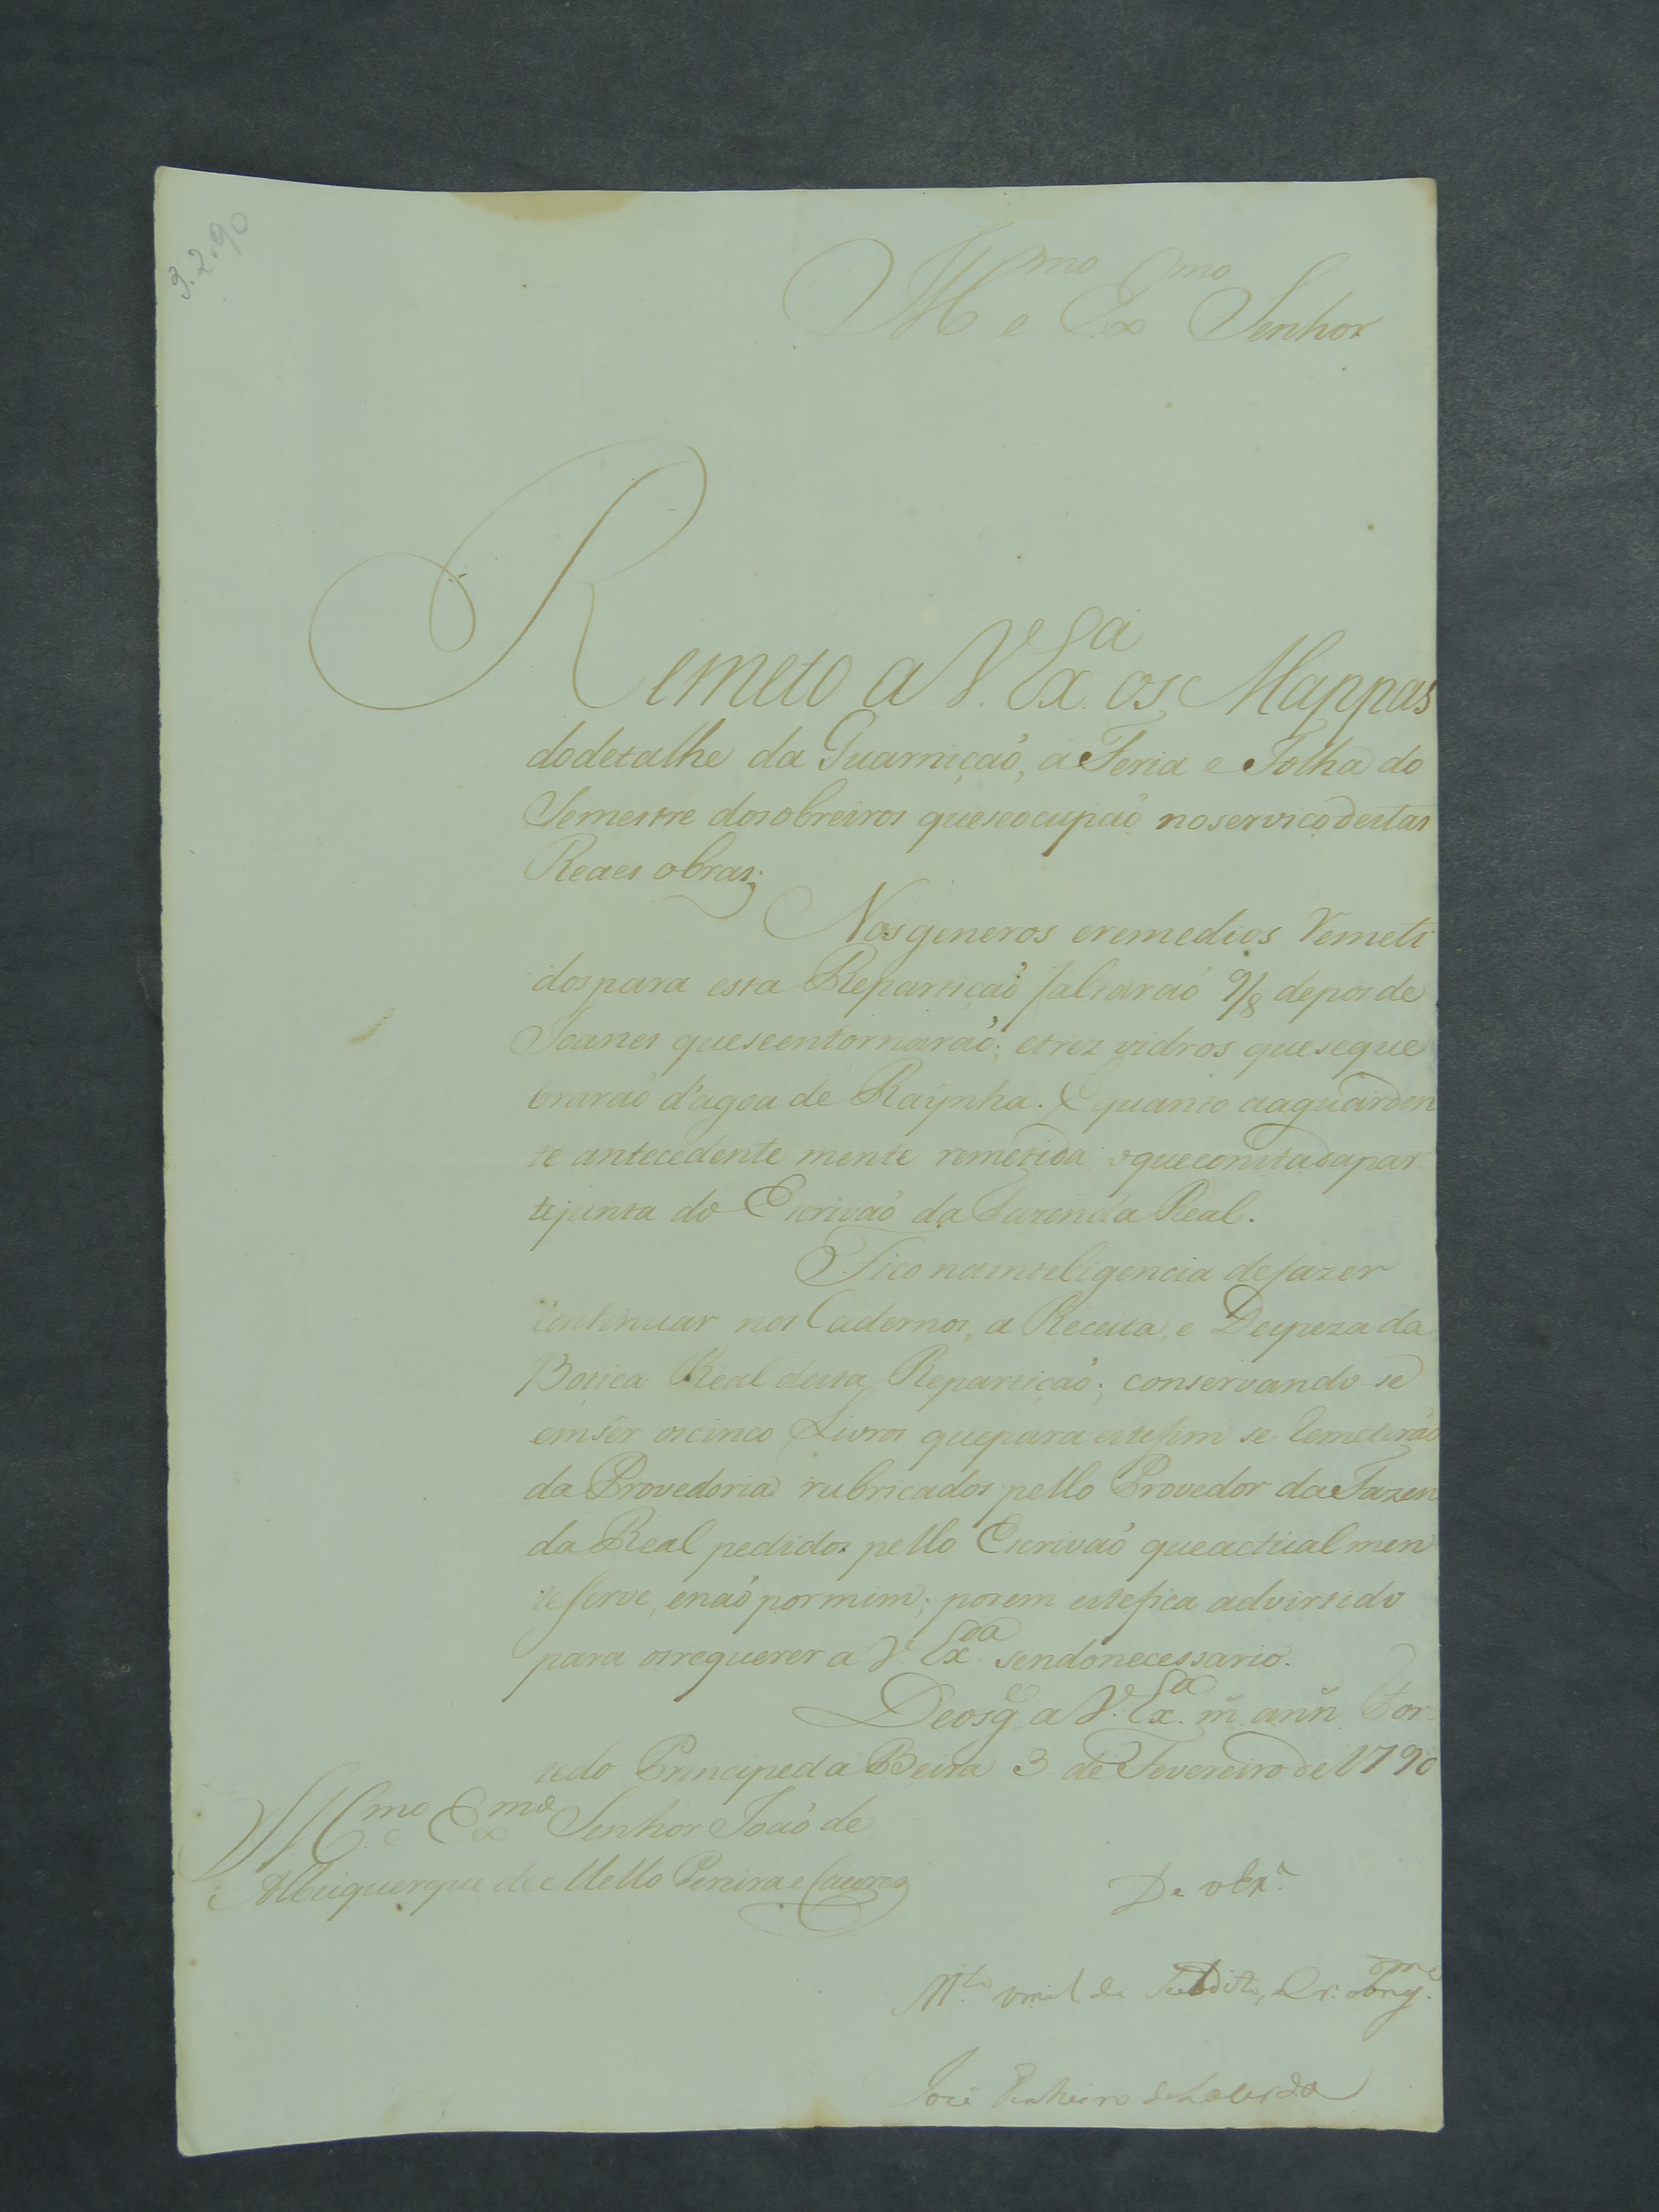 3.2.90
Illmo e Exmo Senhor
Remeto a V. Exa. os Mappas
do detalhe da Guarnição, a Feria e Folha do
Semestre dos obreiros que se ocupão no serviço destas
Reaes obras;
Nos generos e remedios remeti
dos para esta Repartição faltarão 9/8 de pos de
Joanes que se entornarão; e trez vidros que se que
brarão d'agoa de Raÿnha. E quanto a aguarden
te antecedente mente remetida o que consta da par
te junta do Escrivão da Fazenda Real.
Fico na inteligencia de fazer
continuar nos Cadernos, a Receita, e Despeza da
Botica Real desta Repartição; conservando-se
em sêr os cinco Livros que para este fim se remeterão
da Provedoria rubricados pello Provedor da Fazen
da Real pedidos pello Escrivão que actual men
te serve, e não por mim; porem este fica advirtido
para os requerer a V. Exa. sendo necessario.
Deos ge. a V. Exa. m. ann. For
te do Principe da Beira 3 de Fevereiro de 1790
Illmo. e Exmo Senhor João de
Albuquerque de Mello Pereira e Caceres
De V Exa.
Mto umilde Subdito, e Cr. obrigmo.
José Pinheiro de Lacerda